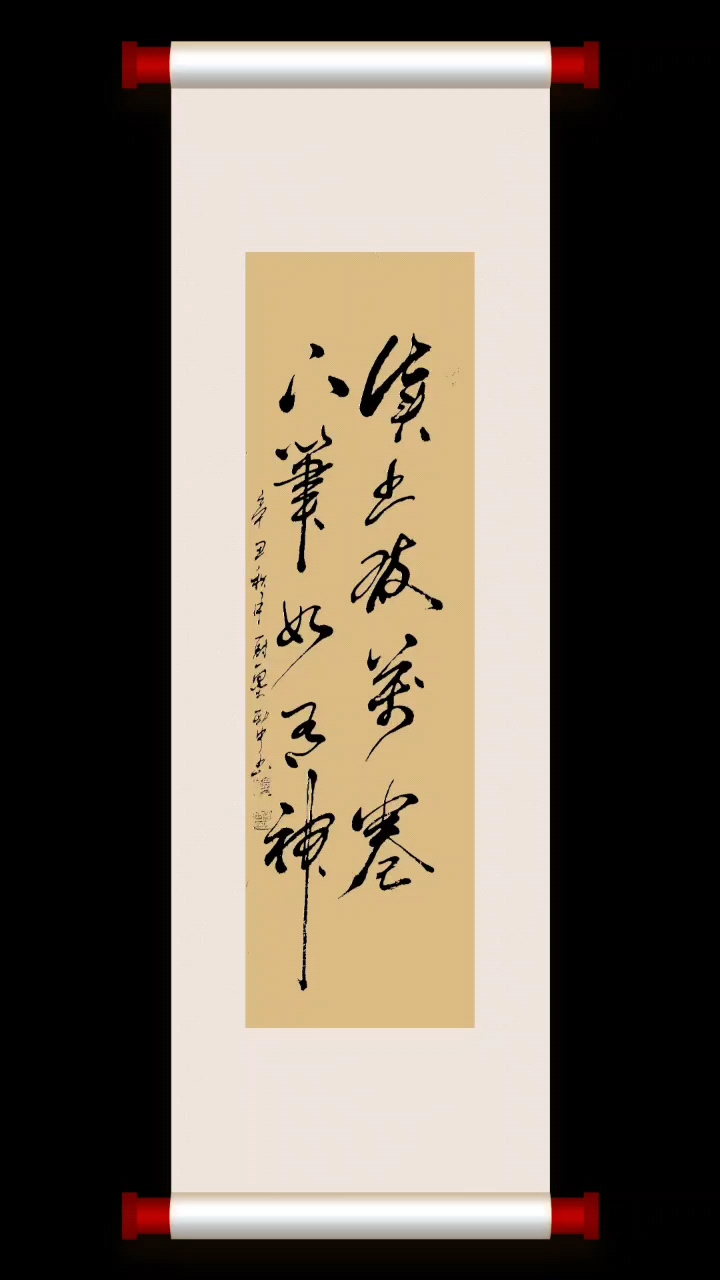 讀書破萬卷
下筆如有神
辛丑秋月